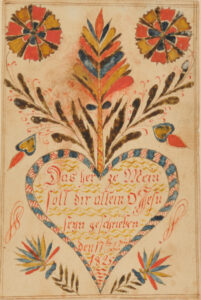 Das herze Mein
soll dir allein O Jesu
seyn geschrieben
den 17ten
182